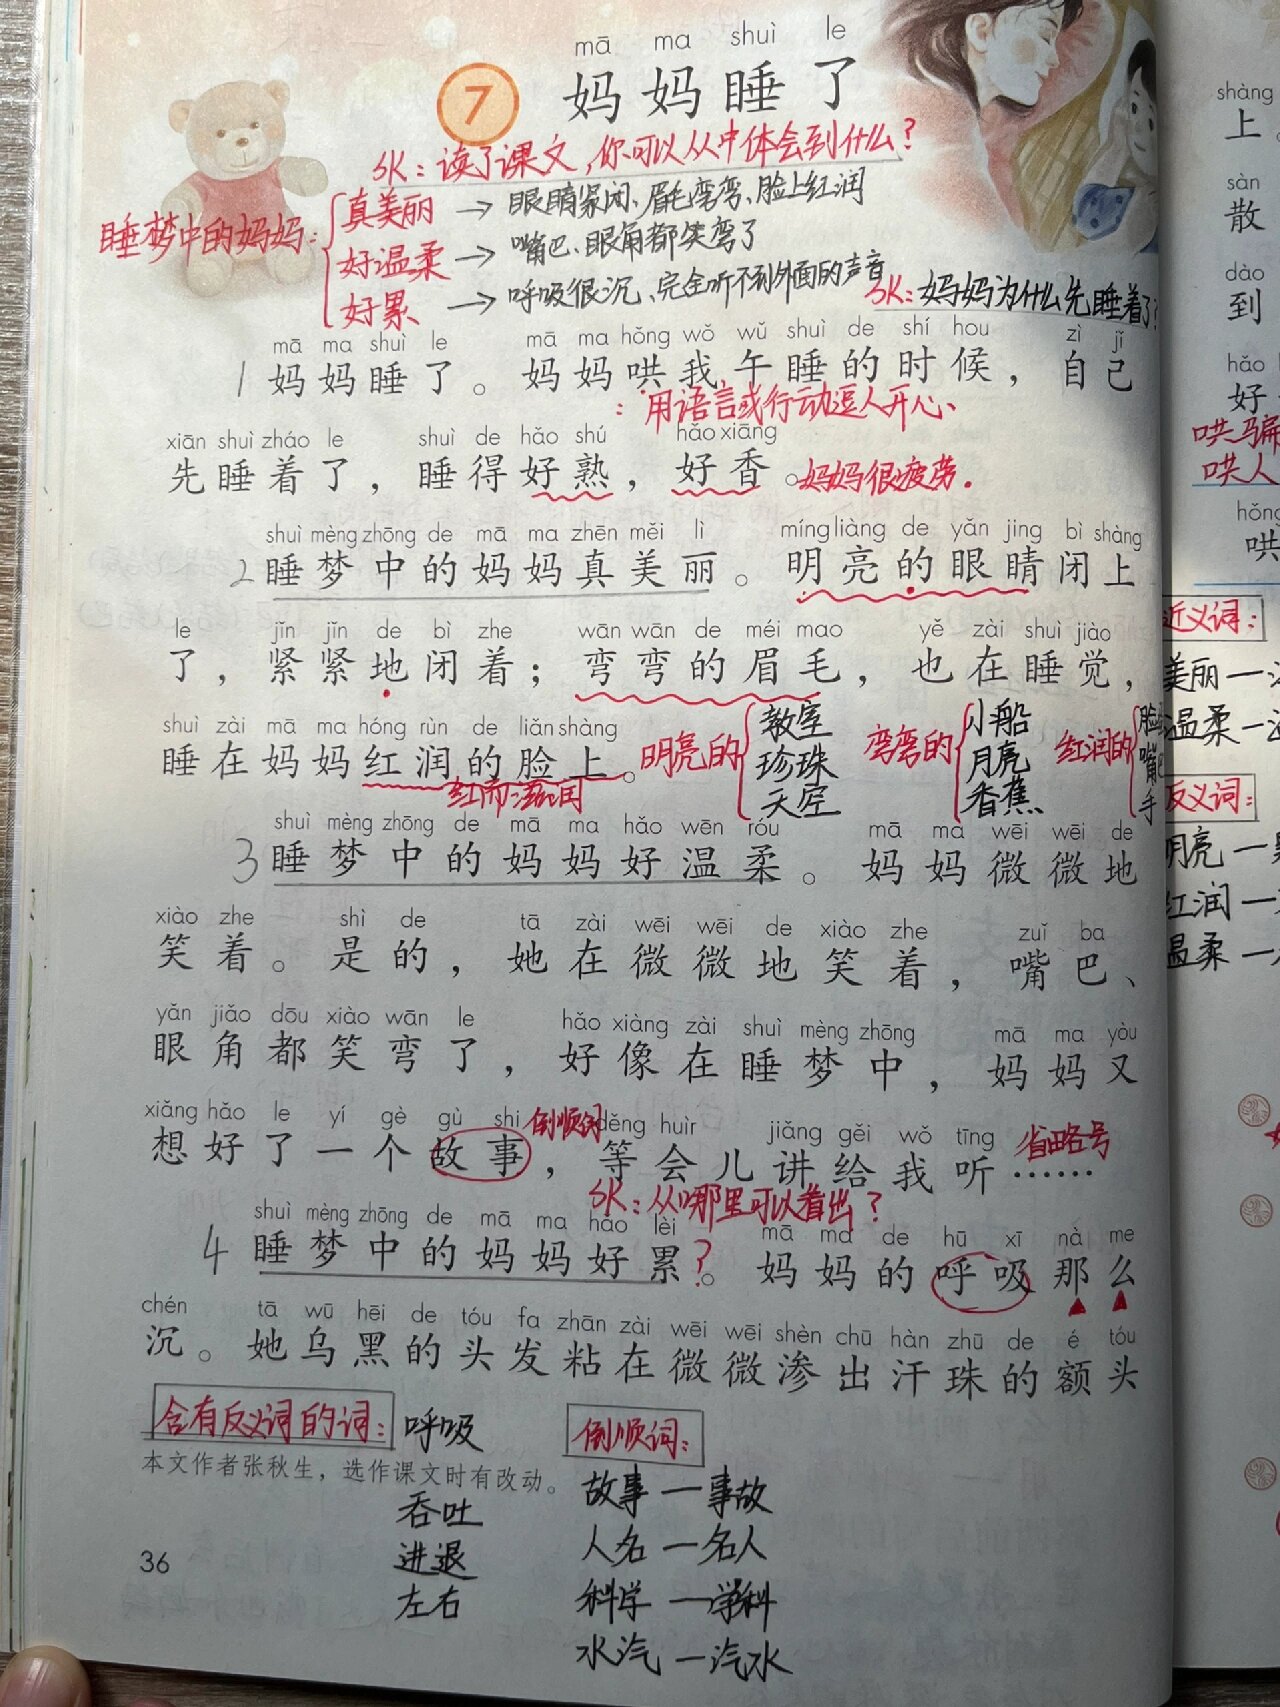 mā ma shuì le
7 妈妈睡了
SK：读了课文，你可以从中体会到什么？
睡梦中的妈妈：
真美丽 → 眼睛紧闭、眉毛弯弯、脸上红润
好温柔 → 嘴巴、眼角都笑弯了
好累 → 呼吸很沉、完全听不到外面的声音
SK：妈妈为什么先睡着了？
mā ma shuì le mā ma hǒng wǒ wǔ shuì de shí hou zì jǐ
1 妈妈睡了。妈妈哄我午睡的时候，自己
：用语言或行动逗人开心、
xiān shuì zháo le shuì de hǎo shú hǎo xiāng
先睡着了，睡得好熟，好香。
妈妈很疲劳.
shuì mèng zhōng de mā ma zhēn měi lì míng liàng de yǎn jing bì shàng
2 睡梦中的妈妈真美丽。明亮的眼睛闭上
le jǐn jǐn de bì zhe wān wān de méi mao yě zài shuì jiào
了，紧紧地闭着；弯弯的眉毛，也在睡觉，
shuì zài mā ma hóng rùn de liǎn shàng
睡在妈妈红润的脸上。
红而滋润
明亮的 教室 珍珠 天空
弯弯的 小船 月亮 香蕉
红润的 脸 嘴 手
shuì mèng zhōng de mā ma hǎo wēn róu mā ma wēi wēi de
3 睡梦中的妈妈好温柔。妈妈微微地
xiào zhe shì de tā zài wēi wēi de xiào zhe zuǐ ba
笑着。是的，她在微微地笑着，嘴巴、
yǎn jiǎo dōu xiào wān le hǎo xiàng zài shuì mèng zhōng mā ma yòu
眼角都笑弯了，好像在睡梦中，妈妈又
xiǎng hǎo le yí gè gù shi 倒顺词 děng huìr jiǎng gěi wǒ tīng 省略号
想好了一个故事，等会儿讲给我听……
SK：从哪里可以看出？
shuì mèng zhōng de mā ma hǎo lèi mā ma de hū xī nà me
4 睡梦中的妈妈好累？。妈妈的呼吸那么
chén tā wū hēi de tóu fa zhān zài wēi wēi shèn chū hàn zhū de é tóu
沉。她乌黑的头发粘在微微渗出汗珠的额头
含有反义词的词：呼吸
本文作者张秋生，选作课文时有改动。
吞吐
进退
左右
倒顺词：
故事—事故
人名—名人
科学—学科
水汽—汽水
36
shàng
上。
sàn
散
dào
到
hǎo
好
哄骗
哄人
hǒng
哄
近义词：
美丽—
温柔—
反义词：
明亮—
红润—
温柔—